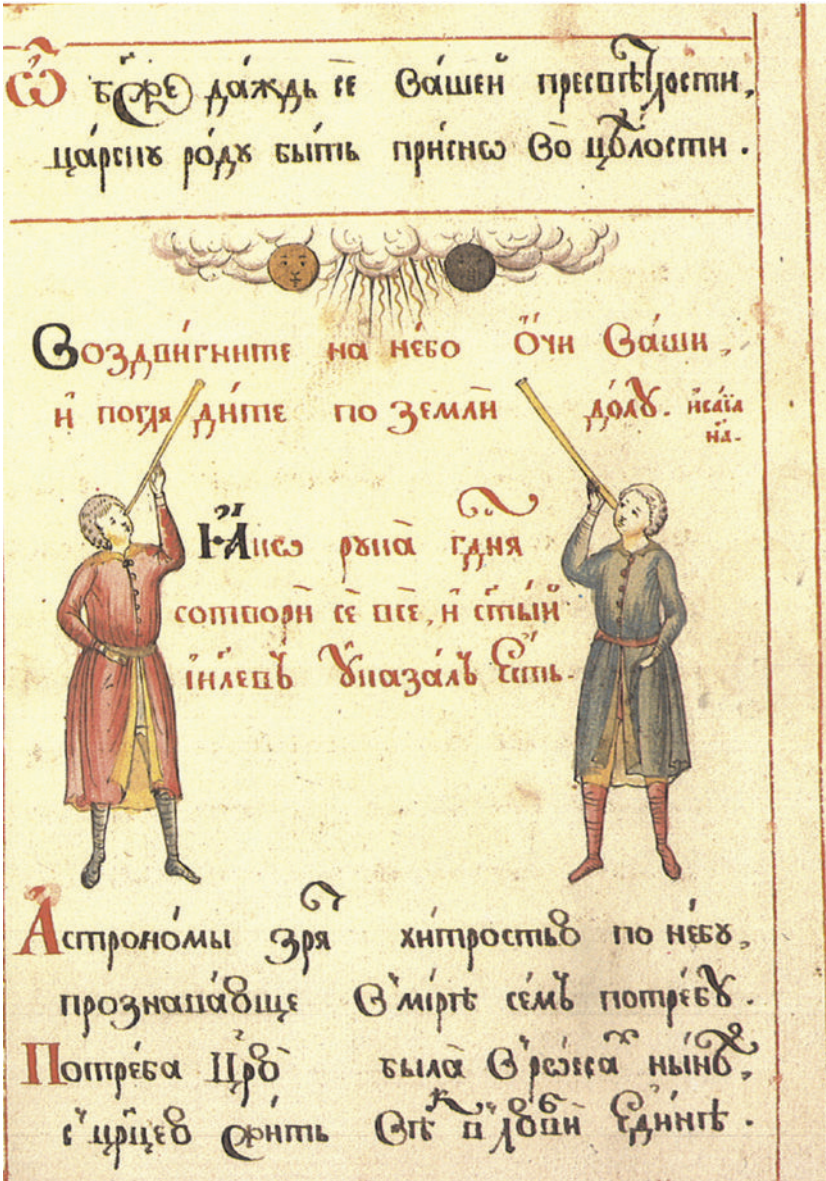 Ѽ Бо́же да́ждь сѐ ва́шей пресвѣ́тлости,
ца́рску ро́ду бы́ть при́снѡ во цѣ́лости.
Воздви́гните на не́бо ѻ҆́чи ва́ши,
и҆ погляди́те по землѝ до́лу. и҆са́їа
н҃а.
Ꙗ҆́кѡ рука̀ гдⷭ҇ня
сотворѝ сѐ всѐ, и҆ ст҃ы́й
і҆и҃левъ ᲂу҆каза́лъ є҆́сть.
Астроно́мы зрѧ́т хи́тростью по не́бу,
прознава́юще в̾ мі́рѣ се́мъ потре́бу.
Потре́ба Цр҃ю̀ была̀ в̾ рѡ́сса ны́нѣ,
с̾ цр҃и́цею жи́ть є҆ди́нѣ.